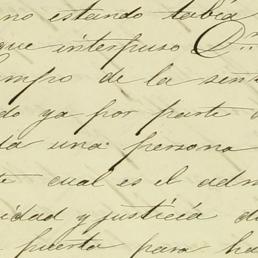 no estando
que interpuso D.n
mpo de la sen
do ya por parte d
ta una persona
te cual es el adm
idad y justicia d
puerta para ha